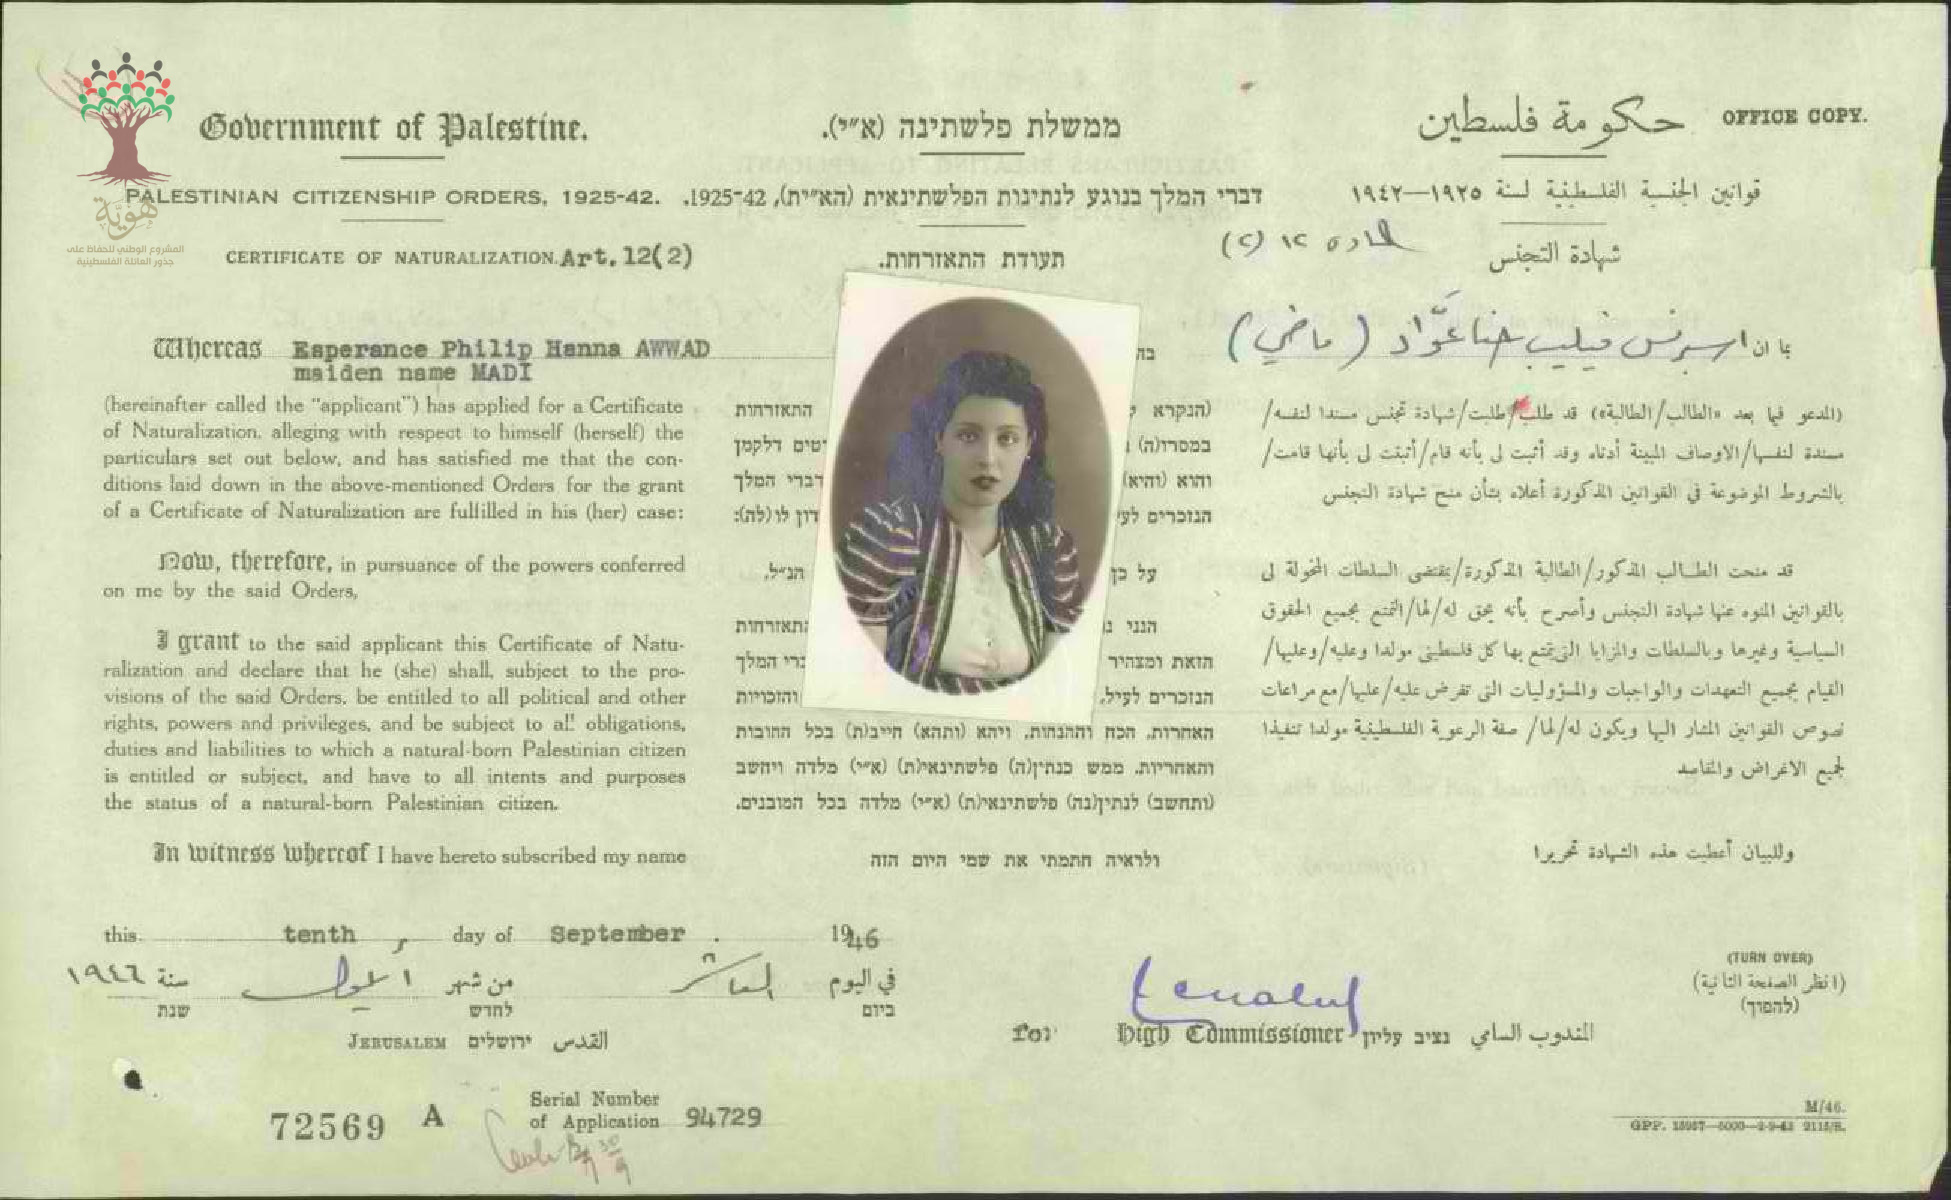 هويّة
المشروع الوطني للحفاظ على
جذور العائلة الفلسطينية
OFFICE COPY.
Government of Palestine.
PALESTINIAN CITIZENSHIP ORDERS, 1925-42.
CERTIFICATE OF NATURALIZATION. Art. 12(2)
Whereas Esperance Philip Hanna AWWAD
maiden name MADI
(hereinafter called the "applicant") has applied for a Certificate
of Naturalization, alleging with respect to himself (herself) the
particulars set out below, and has satisfied me that the con-
ditions laid down in the above-mentioned Orders for the grant
of a Certificate of Naturalization are fulfilled in his (her) case:
Now, therefore, in pursuance of the powers conferred
on me by the said Orders,
I grant to the said applicant this Certificate of Natu-
ralization and declare that he (she) shall, subject to the pro-
visions of the said Orders, be entitled to all political and other
rights, powers and privileges, and be subject to all obligations,
duties and liabilities to which a natural-born Palestinian citizen
is entitled or subject, and have to all intents and purposes
the status of a natural-born Palestinian citizen.
In witness whereof I have hereto subscribed my name
ממשלת פלשתינה (א״י).
דברי המלך בנוגע לנתינות הפלשתינאית (הא״ית), 1925-42.
תעודת התאזרחות.
(הנקרא
התאזרחות
במסרו(ה)
טים דלקמן
והוא (והיא)
דברי המלך
הנזכרים
דון לו(לה):
על כן
הנ״ל,
הנני
התאזרחות
הזאת ומצהיר
המלך
הנזכרים לעיל,
והזכויות
האחרות, הכח וההנחות, ויהא (ותהא) חייב(ת) בכל החובות
והאחריות, ממש כנתין(ה) פלשתינאי(ת) (א״י) מלדה ויחשב
(ותחשב) לנתין(נה) פלשתינאי(ת) (א״י) מלדה בכל המובנים.
ולראיה חתמתי את שמי היום הזה
حكومة فلسطين
قوانين الجنسية الفلسطينية لسنة ١٩٢٥—١٩٤٢
شهادة التجنس المادة ١٢ (٢)
بما ان اسبرنس فيليب حنا عوَّاد (ماضي)
(المدعو فيما بعد «الطالب/الطالبة») قد طلب/طلبت/شهادة تجنس مسندا لنفسه/
مسندة لنفسها/الاوصاف المبينة أدناه وقد أثبت لى بأنه قام/أثبتت لى بأنها قامت/
بالشروط الموضوعة في القوانين المذكورة أعلاه بشأن منح شهادة التجنس
قد منحت الطالب المذكور/الطالبة المذكورة/بمقتضى السلطات المخولة لى
بالقوانين المنوه عنها شهادة التجنس وأصرح بأنه يحق له/لها/التمتع بجميع الحقوق
السياسية وغيرها وبالسلطات والمزايا التى يتمتع بها كل فلسطينى مولدا وعليه/وعليها/
القيام بجميع التعهدات والواجبات والمسؤوليات التى تفرض عليه/عليها/مع مراعات
نصوص القوانين المشار اليها ويكون له/لها/ صفة الرعوية الفلسطينية مولدا تنفيذا
لجميع الاغراض والمقاصد
وللبيان أعطيت هذه الشهادة تحريرا
this tenth, day of September. 1946
في اليوم العاشر من شهر ايلول سنة ١٩٤٦
ביום לחדש שנת
JERUSALEM ירושלים القدس
for High Commissioner נציב עליון المندوب السامي
(TURN OVER)
(انظر الصفحة الثانية)
(להפוך)
72569 A
Serial Number
of Application 94729
M/46.